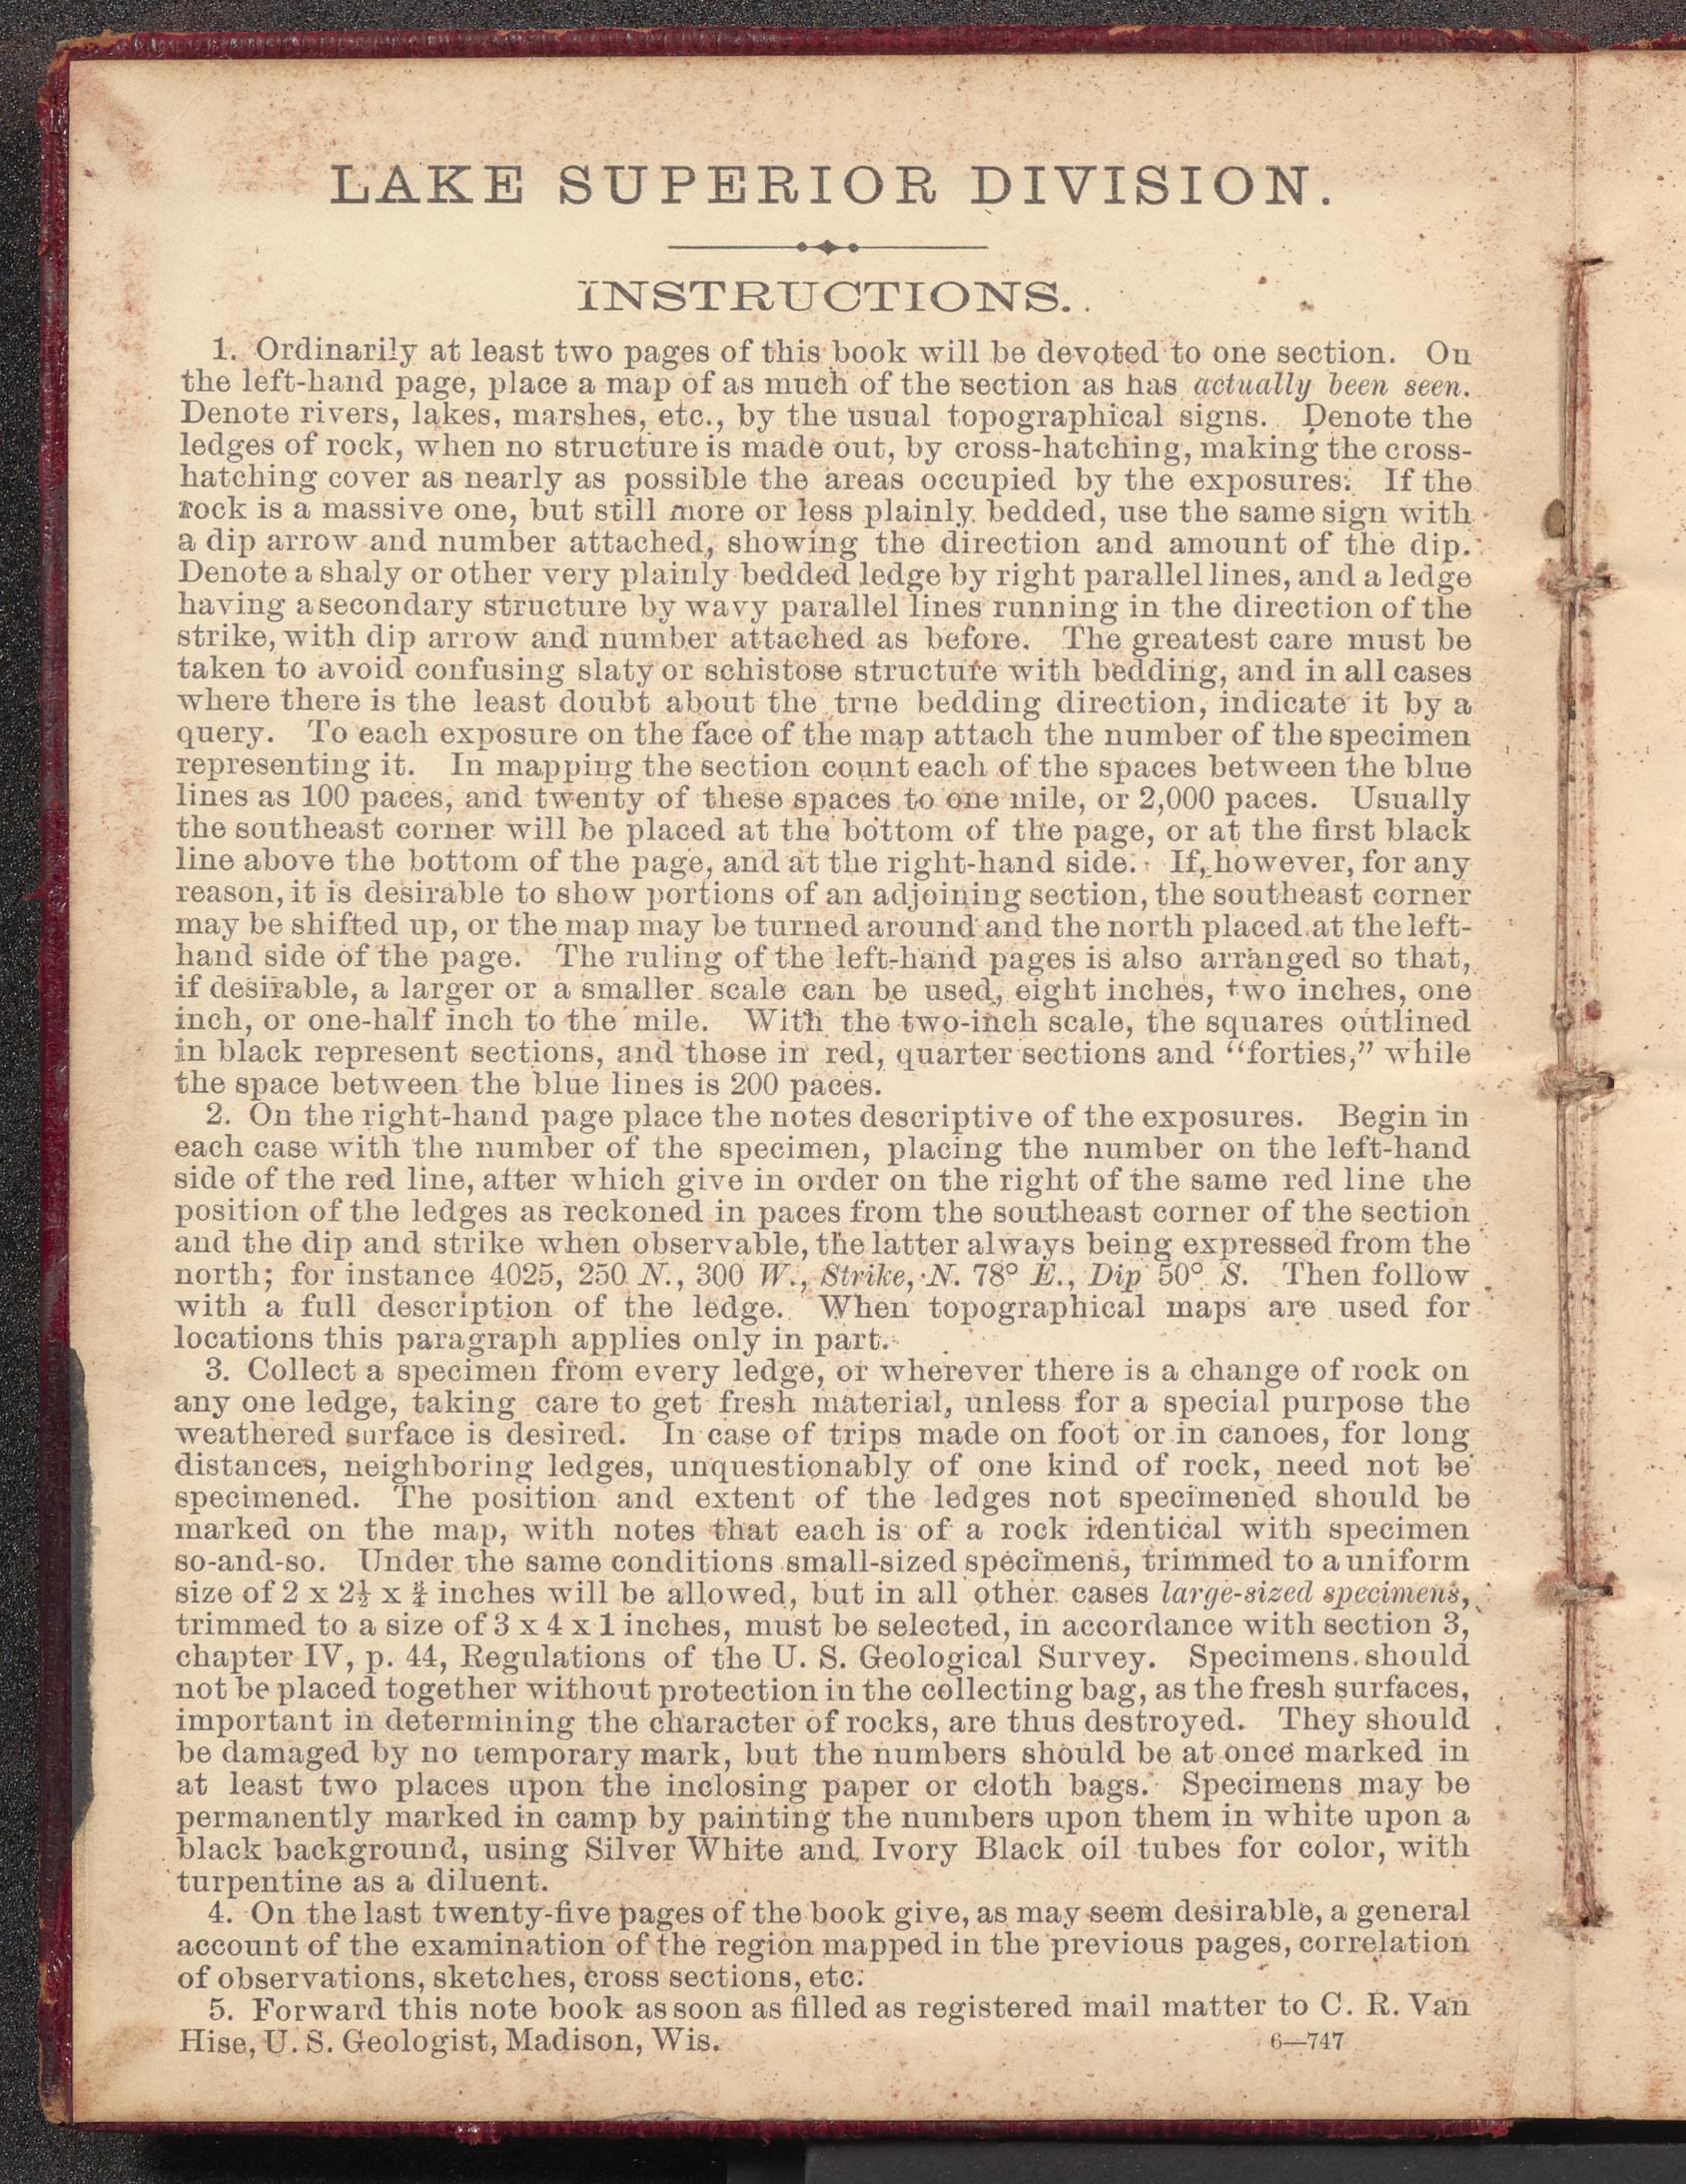 LAKE SUPERIOR DIVISION.
INSTRUCTIONS.
1. Ordinarily at least two pages of this book will be devoted to one section. On
the left-hand page, place a map of as much of the section as has actually been seen.
Denote rivers, lakes, marshes, etc., by the usual topographical signs. Denote the
ledges of rock, when no structure is made out, by cross-hatching, making the cross-
hatching cover as nearly as possible the areas occupied by the exposures. If the
rock is a massive one, but still more or less plainly bedded, use the same sign with
a dip arrow and number attached, showing the direction and amount of the dip.
Denote a shaly or other very plainly bedded ledge by right parallel lines, and a ledge
having a secondary structure by wavy parallel lines running in the direction of the
strike, with dip arrow and number attached as before. The greatest care must be
taken to avoid confusing slaty or schistose structure with bedding, and in all cases
where there is the least doubt about the true bedding direction, indicate it by a
query. To each exposure on the face of the map attach the number of the specimen
representing it. In mapping the section count each of the spaces between the blue
lines as 100 paces, and twenty of these spaces to one mile, or 2,000 paces. Usually
the southeast corner will be placed at the bottom of the page, or at the first black
line above the bottom of the page, and at the right-hand side. If, however, for any
reason, it is desirable to show portions of an adjoining section, the southeast corner
may be shifted up, or the map may be turned around and the north placed at the left-
hand side of the page. The ruling of the left-hand pages is also arranged so that,
if desirable, a larger or a smaller scale can be used, eight inches, two inches, one
inch, or one-half inch to the mile. With the two-inch scale, the squares outlined
in black represent sections, and those in red, quarter sections and “forties,” while
the space between the blue lines is 200 paces.
2. On the right-hand page place the notes descriptive of the exposures. Begin in
each case with the number of the specimen, placing the number on the left-hand
side of the red line, after which give in order on the right of the same red line the
position of the ledges as reckoned in paces from the southeast corner of the section
and the dip and strike when observable, the latter always being expressed from the
north; for instance 4025, 250 N., 300 W., Strike, N. 78° E., Dip 50° S. Then follow
with a full description of the ledge. When topographical maps are used for
locations this paragraph applies only in part.
3. Collect a specimen from every ledge, or wherever there is a change of rock on
any one ledge, taking care to get fresh material, unless for a special purpose the
weathered surface is desired. In case of trips made on foot or in canoes, for long
distances, neighboring ledges, unquestionably of one kind of rock, need not be
specimened. The position and extent of the ledges not specimened should be
marked on the map, with notes that each is of a rock identical with specimen
so-and-so. Under the same conditions small-sized specimens, trimmed to a uniform
size of 2 x 2½ x ¾ inches will be allowed, but in all other cases large-sized specimens,
trimmed to a size of 3 x 4 x 1 inches, must be selected, in accordance with section 3,
chapter IV, p. 44, Regulations of the U. S. Geological Survey. Specimens should
not be placed together without protection in the collecting bag, as the fresh surfaces,
important in determining the character of rocks, are thus destroyed. They should
be damaged by no temporary mark, but the numbers should be at once marked in
at least two places upon the inclosing paper or cloth bags. Specimens may be
permanently marked in camp by painting the numbers upon them in white upon a
black background, using Silver White and Ivory Black oil tubes for color, with
turpentine as a diluent.
4. On the last twenty-five pages of the book give, as may seem desirable, a general
account of the examination of the region mapped in the previous pages, correlation
of observations, sketches, cross sections, etc.
5. Forward this note book as soon as filled as registered mail matter to C. R. Van
Hise, U. S. Geologist, Madison, Wis. 6—747